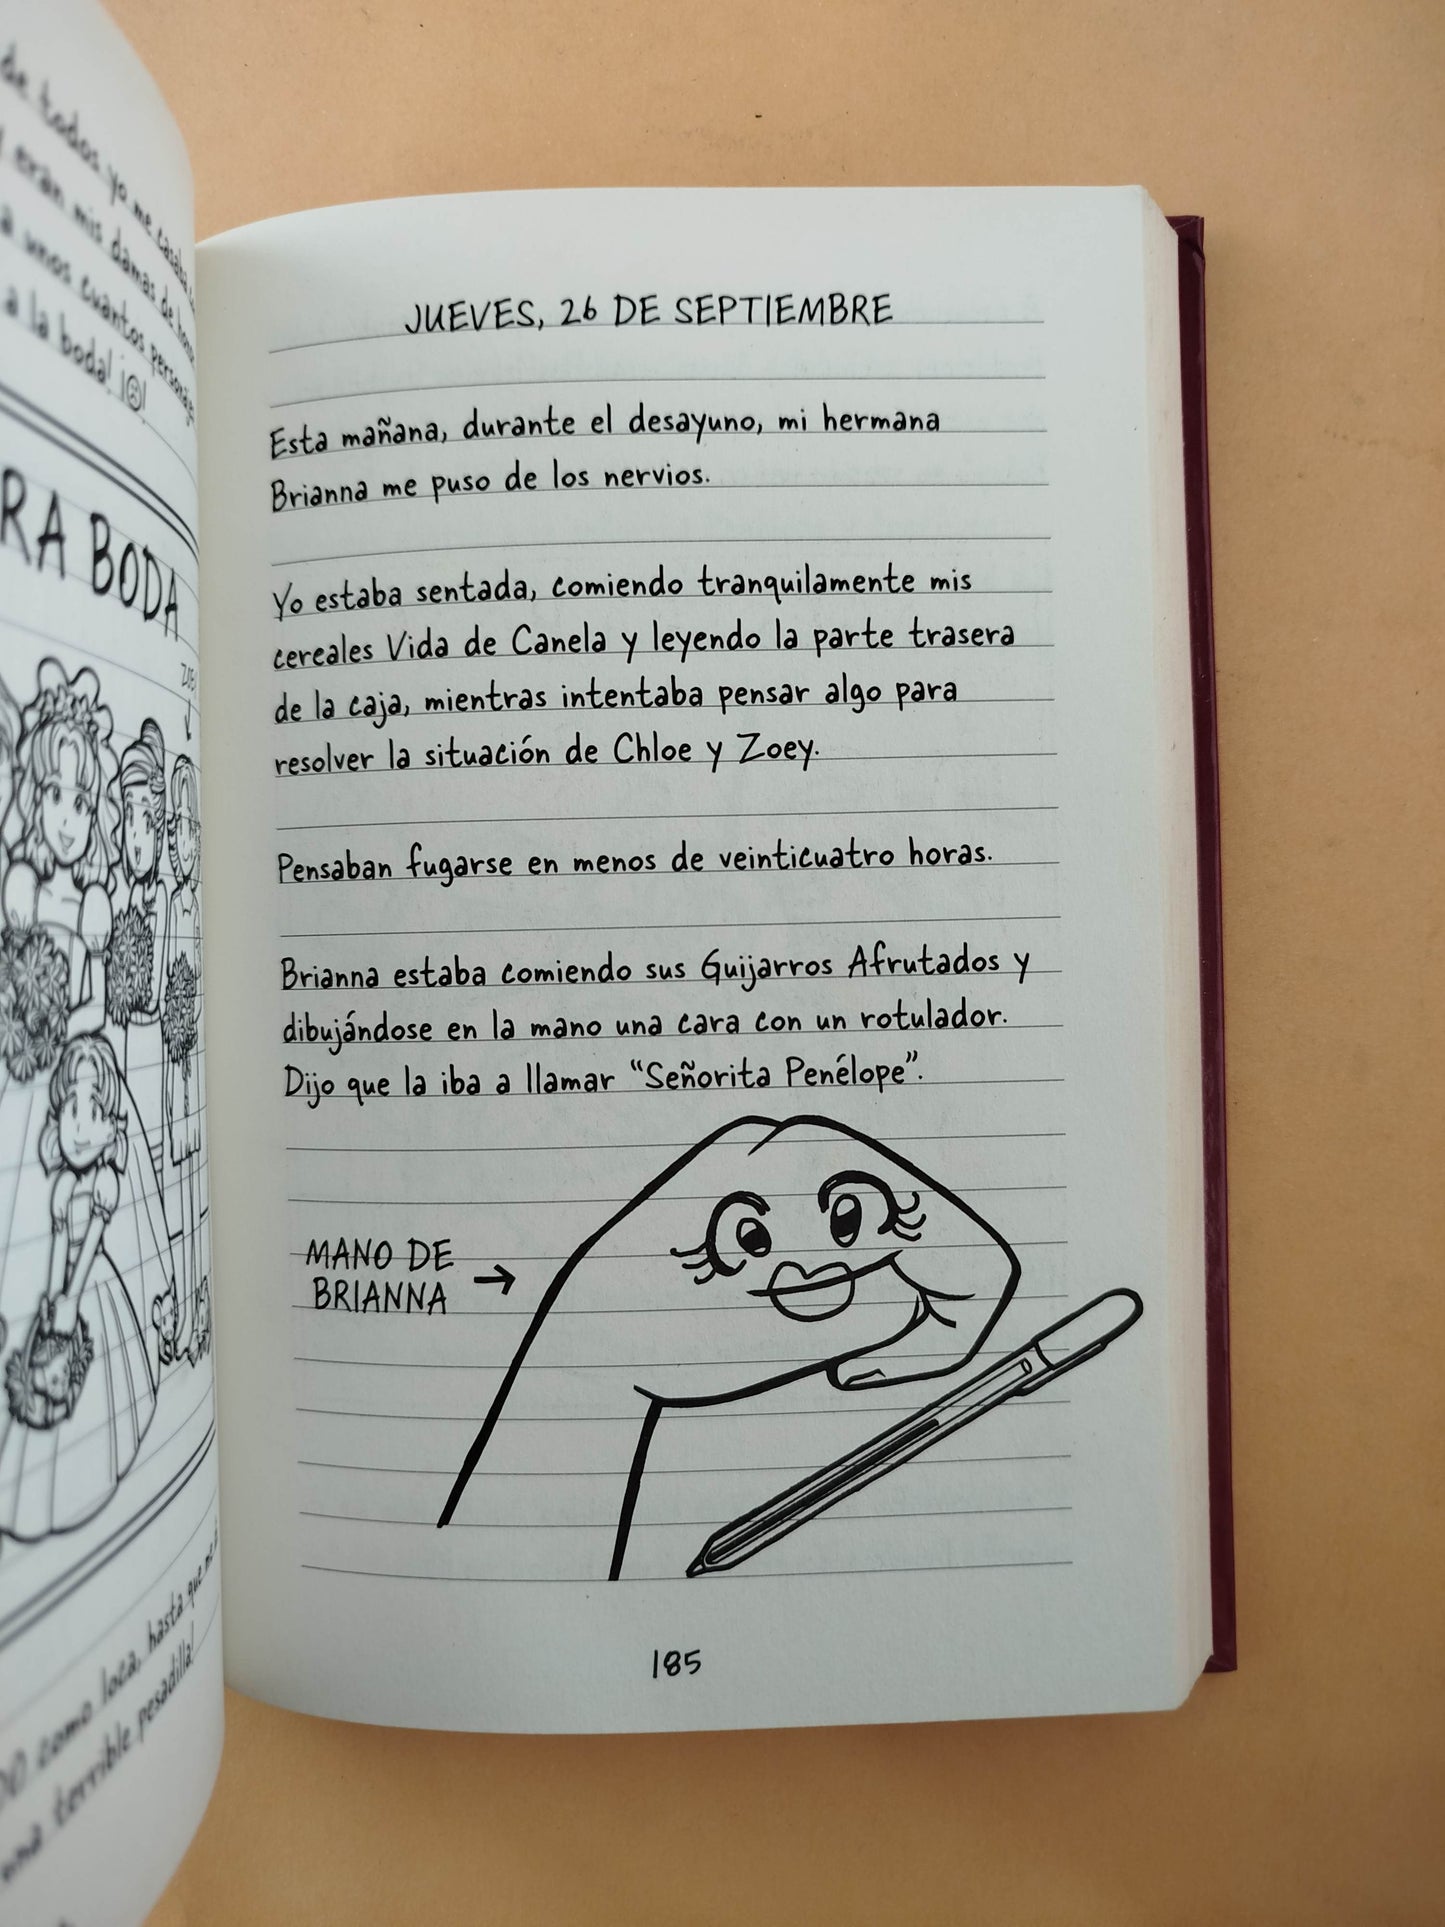 de todos yo me casaba
eran mis damas de
unos cuantos personajes
a la boda! ¡☹!
RA BODA
ZOEY
como loca, hasta que me
una terrible pesadilla!
JUEVES, 26 DE SEPTIEMBRE
Esta mañana, durante el desayuno, mi hermana
Brianna me puso de los nervios.
Yo estaba sentada, comiendo tranquilamente mis
cereales Vida de Canela y leyendo la parte trasera
de la caja, mientras intentaba pensar algo para
resolver la situación de Chloe y Zoey.
Pensaban fugarse en menos de veinticuatro horas.
Brianna estaba comiendo sus Guijarros Afrutados y
dibujándose en la mano una cara con un rotulador.
Dijo que la iba a llamar “Señorita Penélope”.
MANO DE
BRIANNA →
185